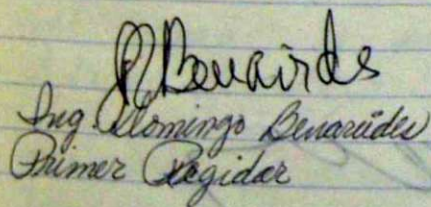 Benairds
Ing. Domingo Benavides
Primer Regidor